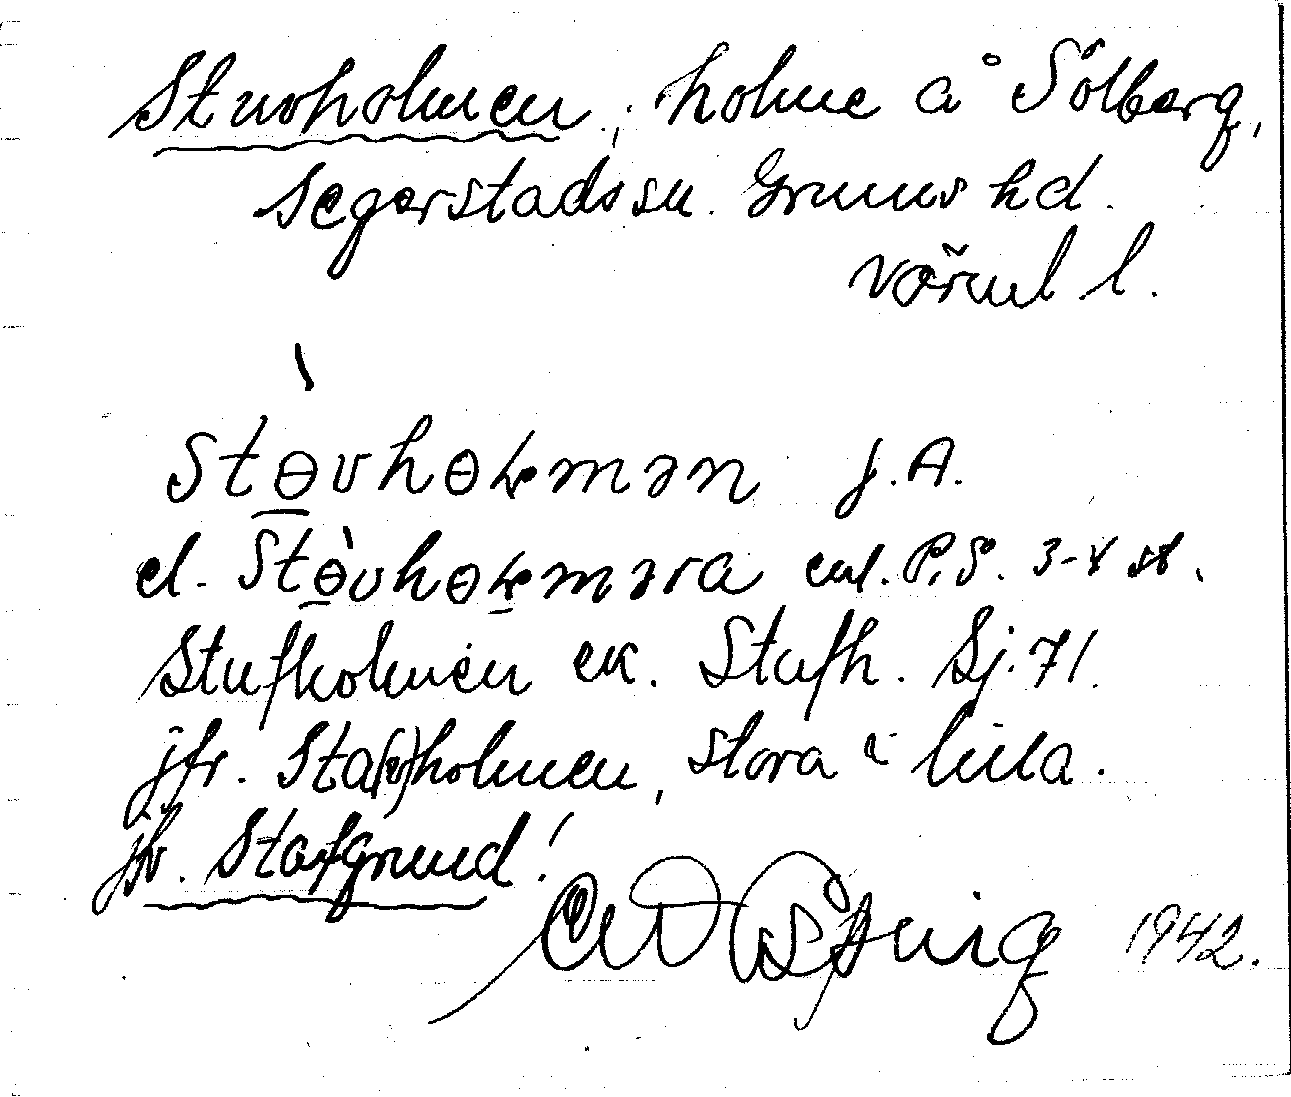 Stuvholmen, holme å Sölberg,
Segerstads sn. Grums hd.
Värml l.
Stɵ̀vhɵɽmən f. A.
el. Stɵ̀vhɵɽməra enl. P. S. 3-4 st.
Stufholmen ek. Stufh. Sj. 71.
jfr. Sta(v)holmen, stora o lilla.
jfr. Stafgrund!
1942.